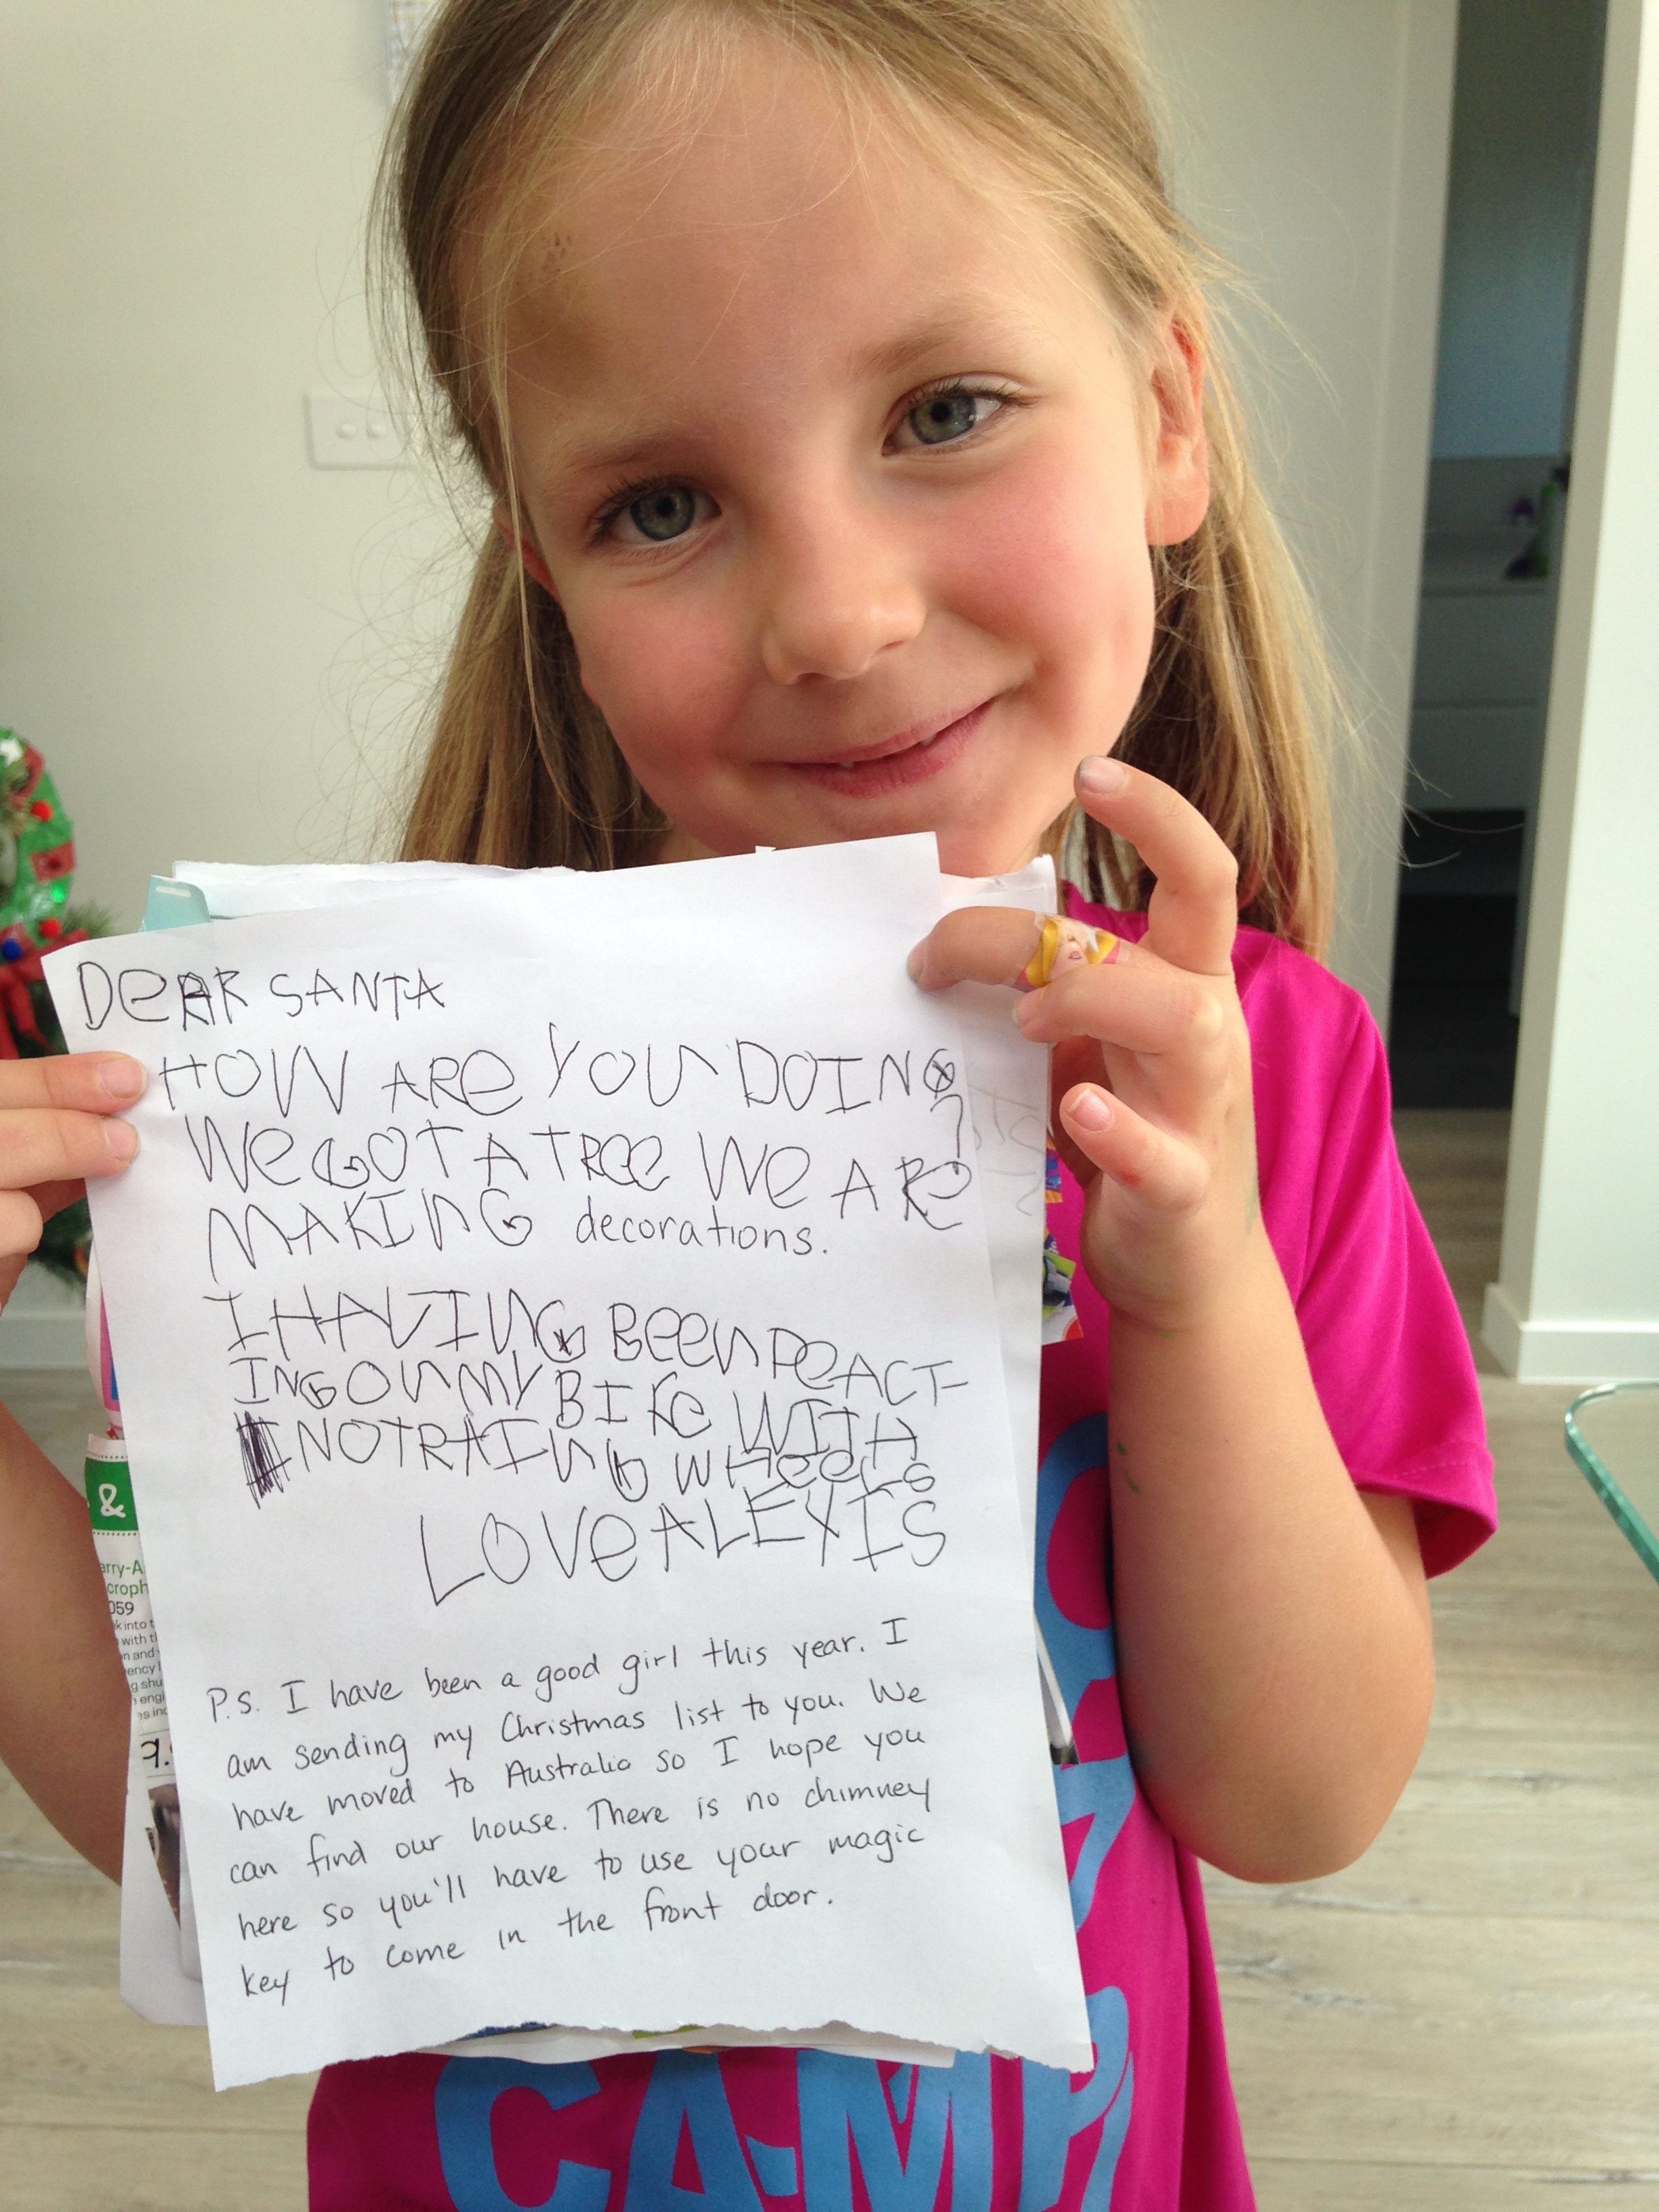 DeAR SANTA
HOW ARe YOU DOING
?
We GOT A TRee We ARe
MAKING decorations.
I HAVING BeeN PeACT-
ING ON MY BIKe WITH
NO TRAINING WHeeLs
LOVe ALEXIS
P.S. I have been a good girl this year. I
am sending my Christmas list to you. We
have moved to Australia so I hope you
can find our house. There is no chimney
here so you'll have to use your magic
key to come in the front door.
&
arry-A
croph
059
k into t
with th
n and
ency l
g shu
engi
es inc
9.
CAMP